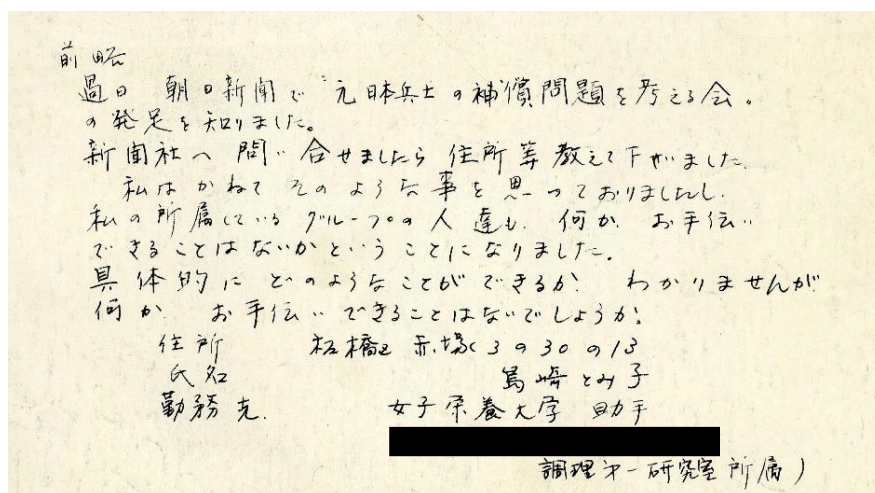 前略
過日 朝日新聞で "元日本兵士の補償問題を考える会"
の発足を知りました。
新聞社へ問い合せましたら住所等教えて下さいました
私はかねてそのような事を思っておりましたし、
私の所属しているグループの人達も、何か、お手伝い
できることはないかということになりました。
具体的にどのようなことができるか、わかりませんが
何か、お手伝いできることはないでしょうか。
住所 板橋区 赤塚 3の30の13
氏名 島崎とみ子
勤務先. 女子栄養大学 助手
調理才一研究室所属)